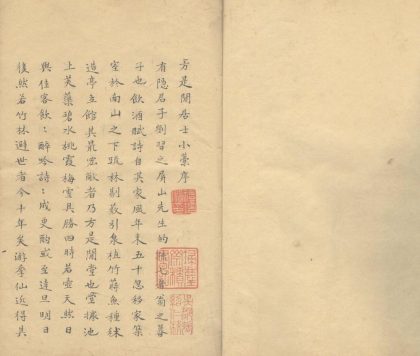 方是閒居士小藁序
有隱君子劉習之屏山先生的孫七者翁之暮
子也飲酒賦詩自其家風年未五十忽移家築
室於南山之下疏林剔引泉植竹蒔魚種秫
造亭立館其最宏敞者乃方是閒堂也堂據池
上芙蕖碧水桃霞梅雪具勝四時若壺天然日
與佳客飲〻醉吟詩〻成更酌或至達旦明日
復然若竹林避世者今十年矣游季仙近得其